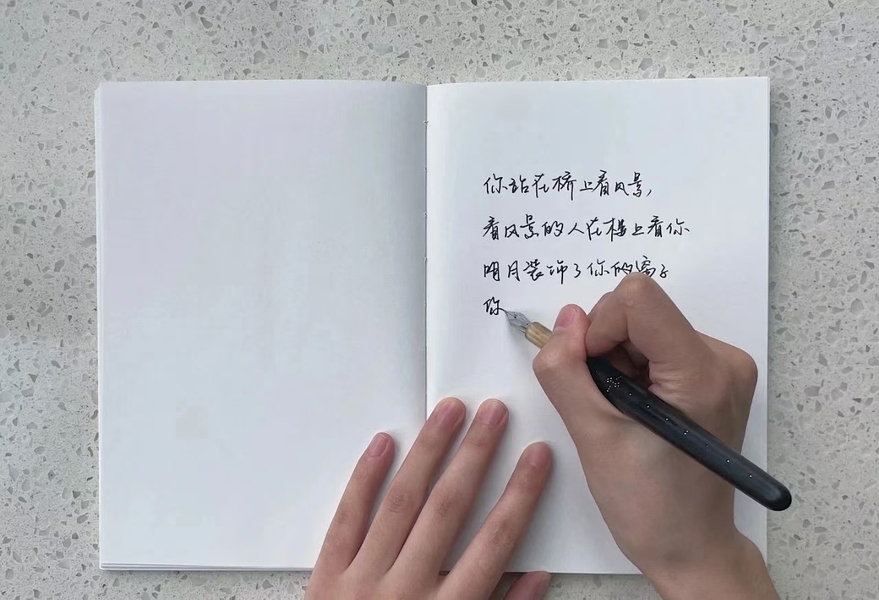 你站在桥上看风景,
看风景的人在楼上看你
明月装饰了你的窗子
你